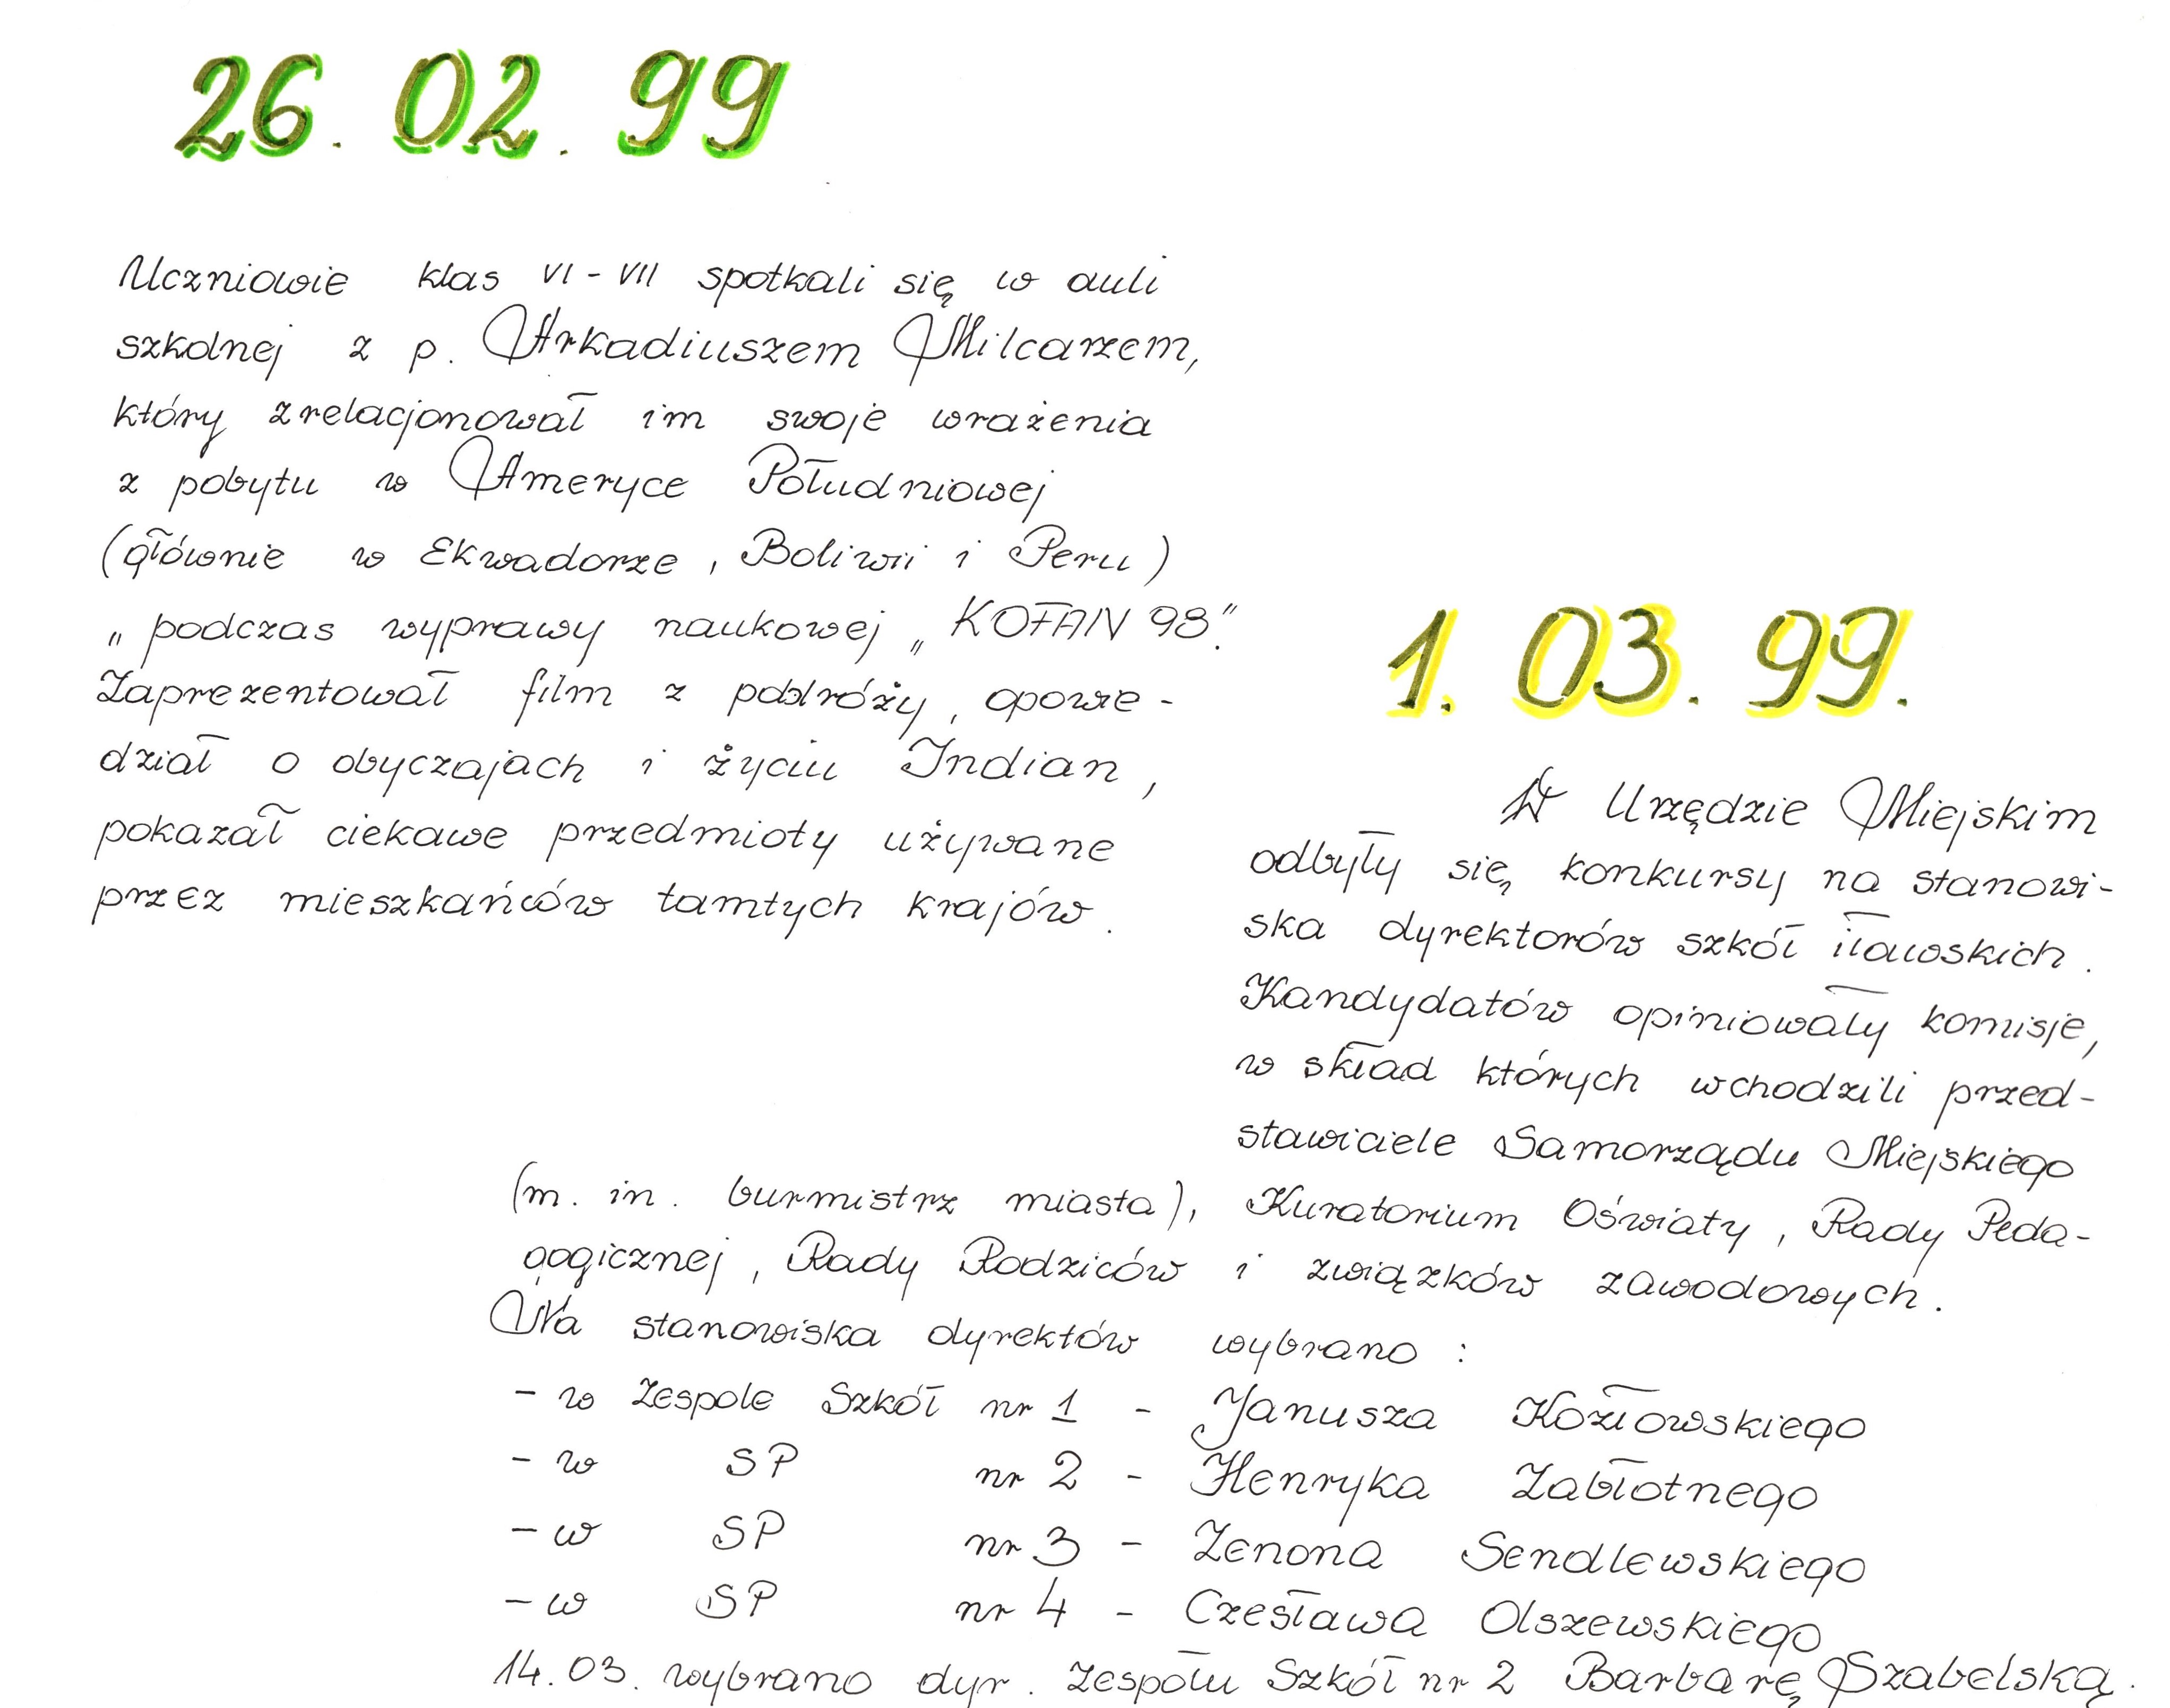 26. 02. 99
Uczniowie klas VI - VII spotkali się w auli
szkolnej z p. Arkadiuszem Milcarzem,
który zrelacjonował im swoje wrażenia
z pobytu w Ameryce Południowej
(głównie w Ekwadorze, Boliwii i Peru)
„podczas wyprawy naukowej „KOFAN 98”.
Zaprezentował film z podróży, opowie-
dział o obyczajach i życiu Indian,
pokazał ciekawe przedmioty używane
przez mieszkańców tamtych krajów.
1. 03. 99.
W Urzędzie Miejskim
odbyły się konkursy na stanowi-
ska dyrektorów szkół iławskich.
Kandydatów opiniowały komisje,
w skład których wchodzili przed-
stawiciele Samorządu Miejskiego
(m. in. burmistrz miasta), Kuratorium Oświaty, Rady Peda-
gogicznej, Rady Rodziców i związków zawodowych.
Na stanowiska dyrektów wybrano :
- w Zespole Szkół nr 1 - Janusza Kozłowskiego
- w SP nr 2 - Henryka Zabłotnego
- w SP nr 3 - Zenona Sendlewskiego
- w SP nr 4 - Czesława Olszewskiego
14.03. wybrano dyr. Zespołu Szkół nr 2 Barbarę Szabelską.